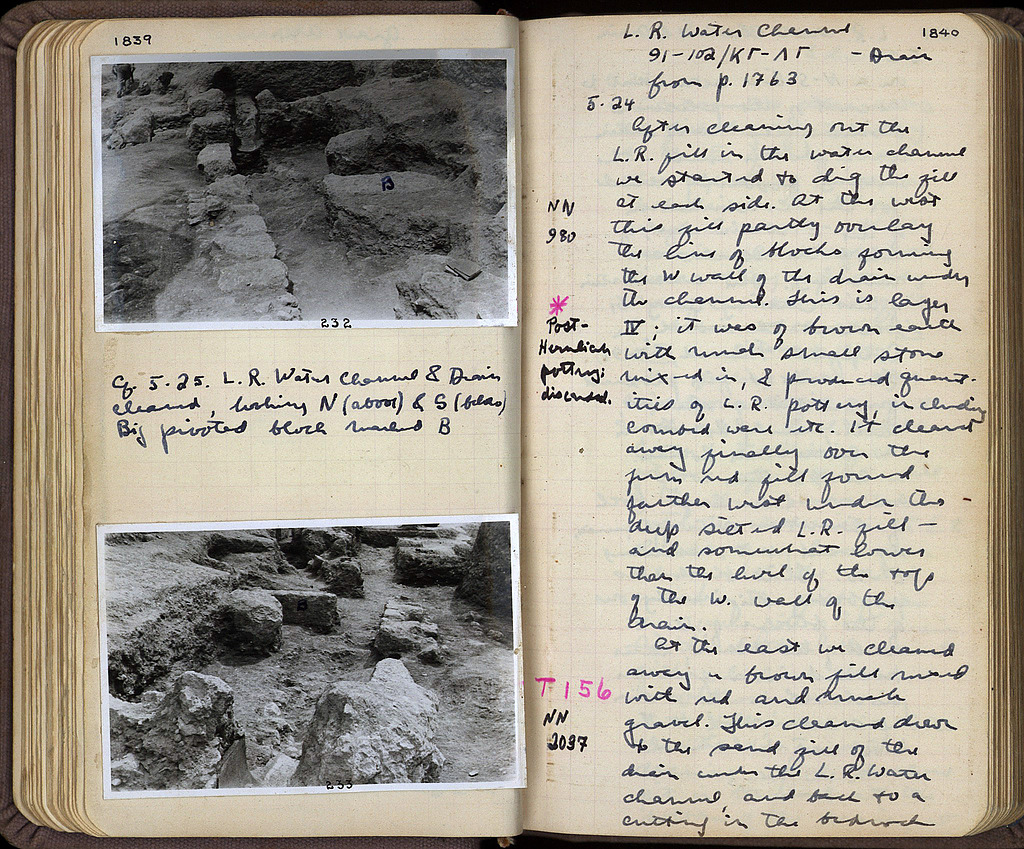 1839
B
232
Cf. 5-25. L.R. Water Channel & Drain
cleared, looking N (above) & S (below)
Big pivoted block marked B
B
233
1840
L. R. Water Channel
91-102/ΚΓ-ΛΓ - Drain
from p. 1763
5-24
After cleaning out the
L.R. fill in the water channel
we started to dig the fill
at each side. At the west
this fill partly overlay
the line of blocks forming
the W wall of the drain under
the channel. This is layer
IV; it was of brown earth
with much small stone
mixed in, & produced quant-
ities of L.R. pottery, including
combed ware etc. It cleared
away finally over the
firm red fill found
farther west under the
deep silted L.R. fill –
and somewhat lower
than the level of the tops
of the W. wall of the
drain.
At the east we cleared
away a brown fill mixed
with red and much
gravel. This cleared down
to the sand fill of the
drain under the L.R. Water
channel, and back to a
cutting in the bedrock
NN
980
*
Post-
Herulian
pottery:
discarded.
T 156
NN
2037